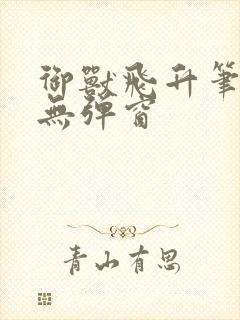 御獸飛升筆
無彈窗
青山有思